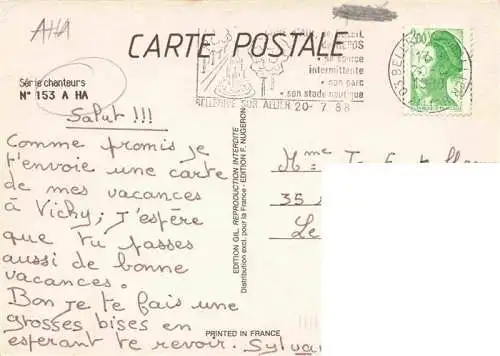 AHA
CARTE POSTALE
Série chanteurs
N° 153 A HA
REPOS
sa source
intermittente
• son parc
• son stade nautique
BELLERIVE SUR ALLIER 20-7 88
Salut !!!
Comme promis je
t'envoie une carte
de mes vacances
à Vichy; J'espère
que tu passes
aussi de bonne
vacances.
Bon je te fais une
grosses bises en
esperant te revoir. Sylva
EDITION GIL. REPRODUCTION INTERDITE
Distribution excl. pour la France - EDITION F. NUGERON
PRINTED IN FRANCE
Mme
35
Le